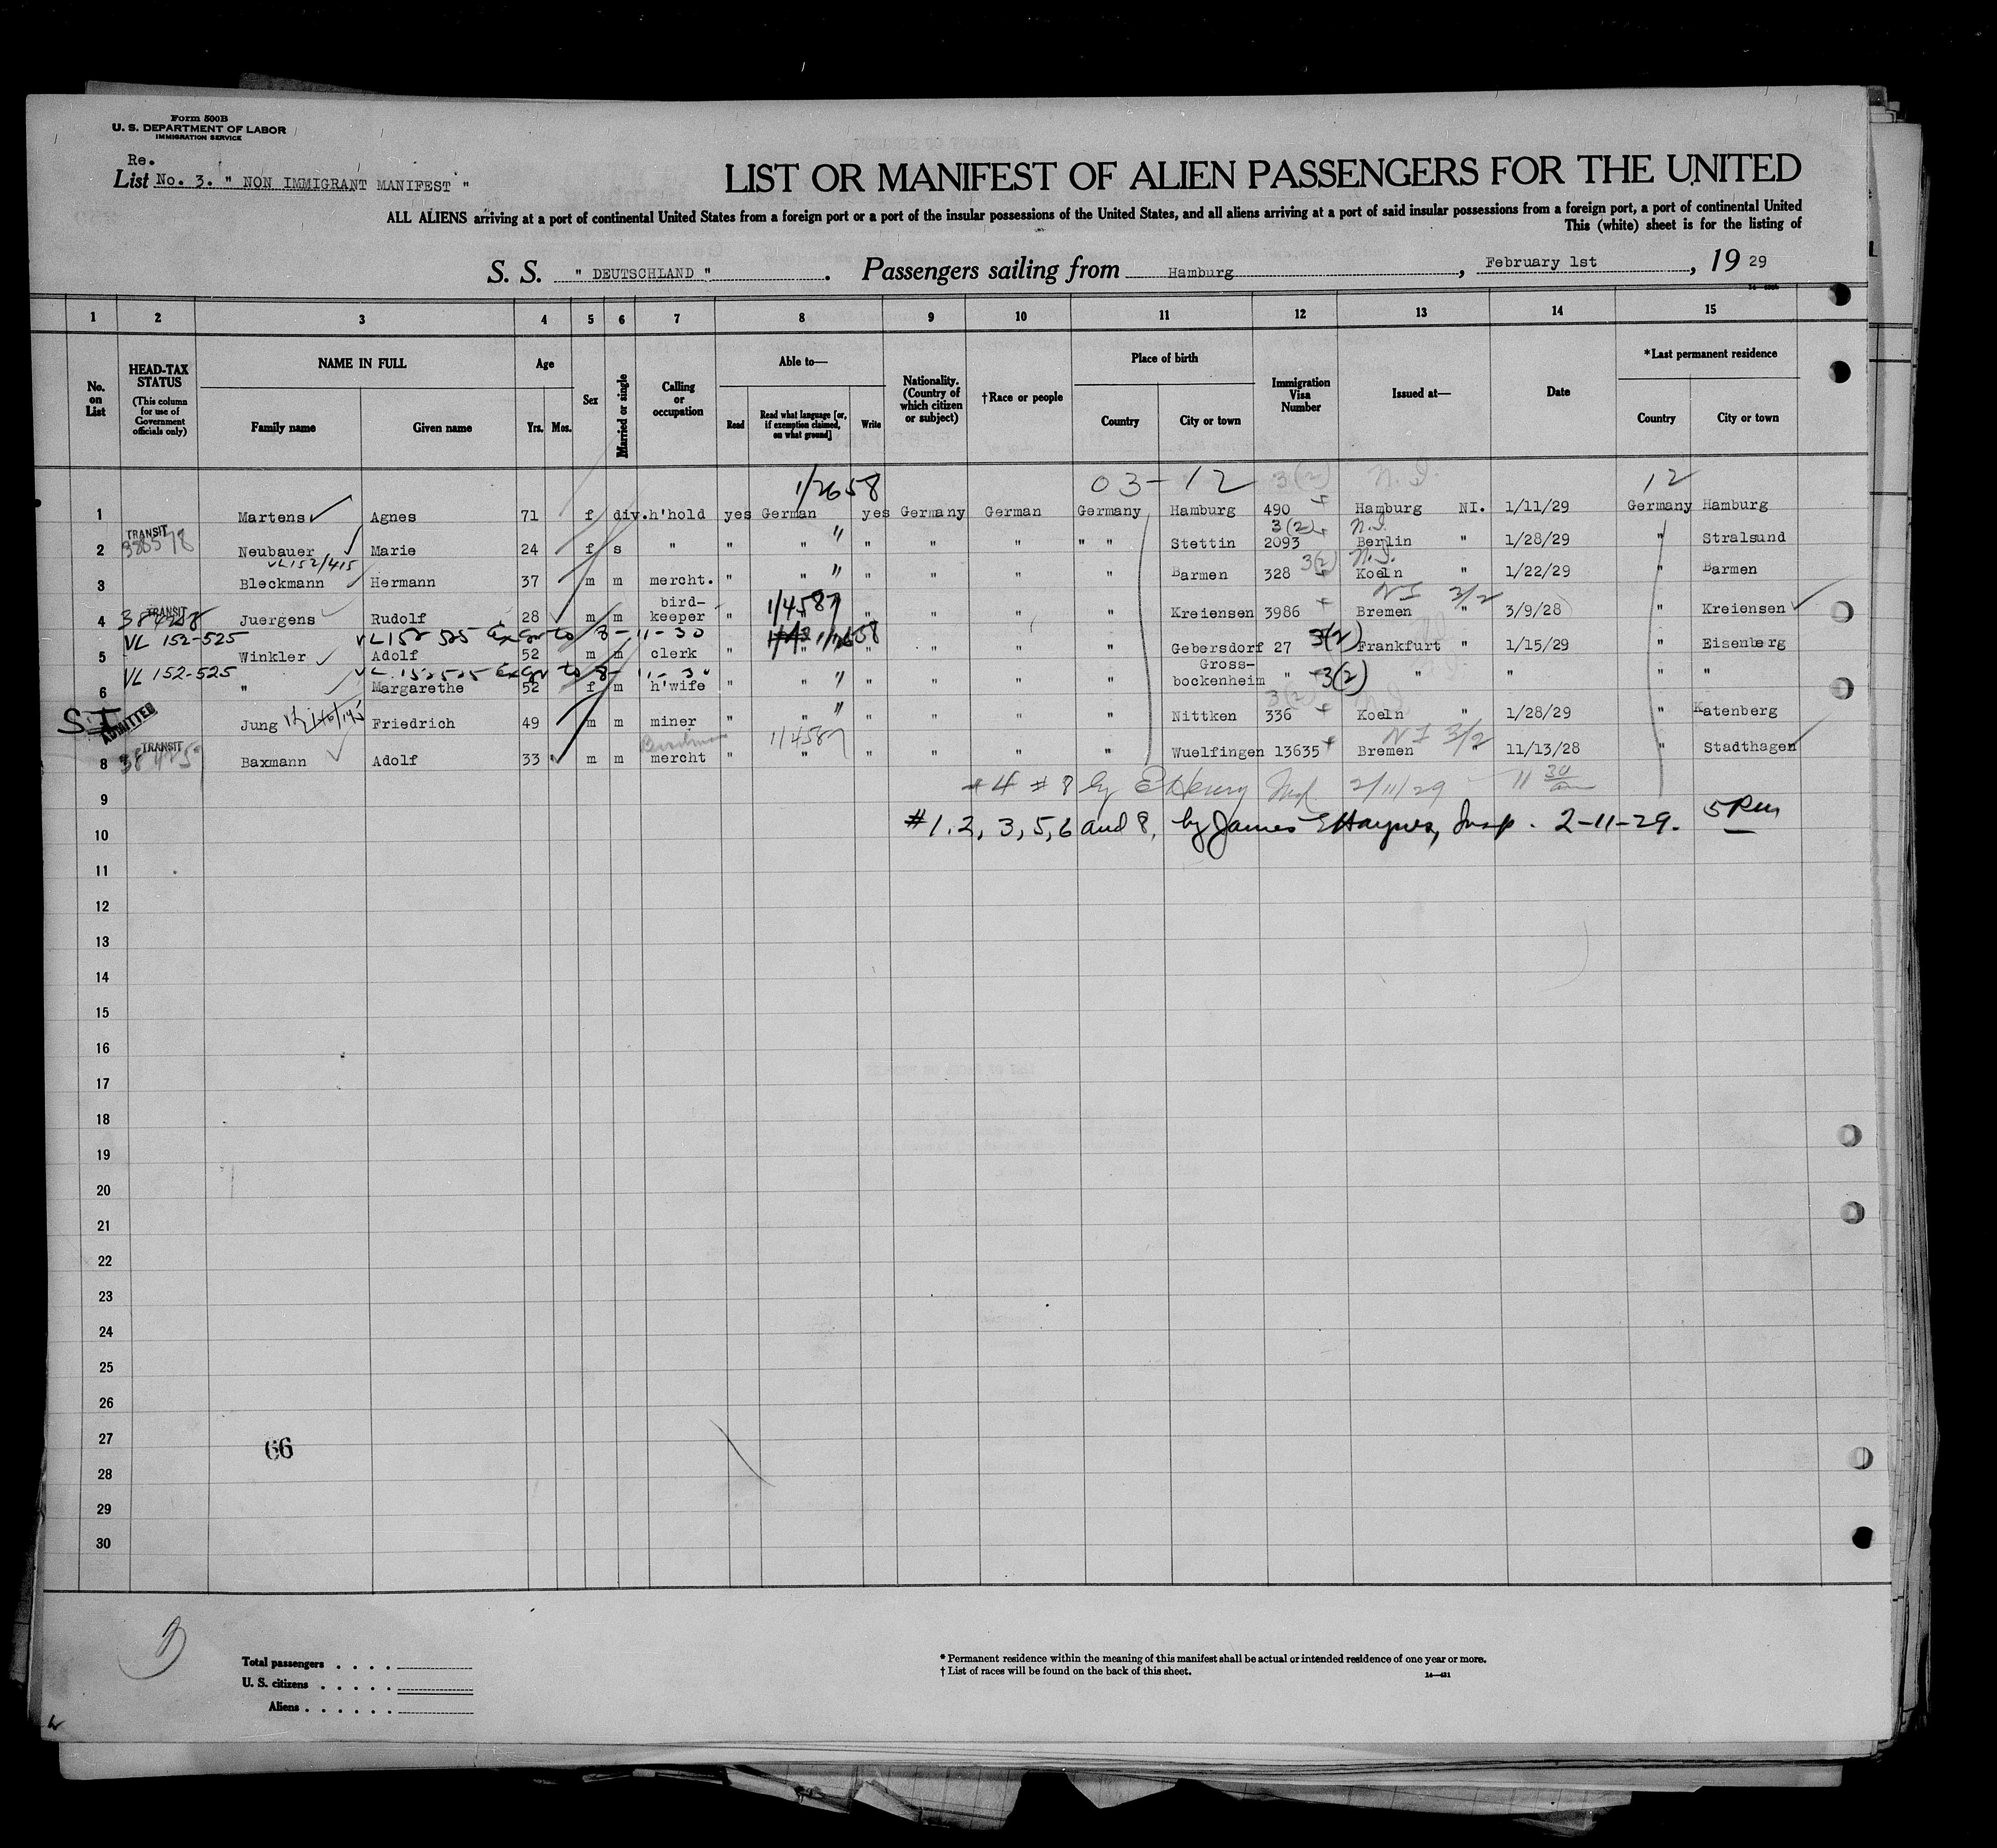 Form 500B
U. S. DEPARTMENT OF LABOR
IMMIGRATION SERVICE
Re.
List No. 3. " NON IMMIGRANT MANIFEST "
LIST OR MANIFEST OF ALIEN PASSENGERS FOR THE UNITED
ALL ALIENS arriving at a port of continental United States from a foreign port or a port of the insular possessions of the United States, and all aliens arriving at a port of said insular possessions from a foreign port, a port of continental United
This (white) sheet is for the listing of
S. S. " DEUTSCHLAND " . Passengers sailing from Hamburg , February 1st , 19 29
1 2 3 4 5 6 7 8 9 10 11 12 13 14 15
No. on List
HEAD-TAX STATUS
(This column for use of Government officials only)
NAME IN FULL
Family name Given name
Age
Yrs. Mos.
Sex
Married or single
Calling or occupation
Able to—
Read Read what language [or, if exemption claimed, on what ground] Write
Nationality. (Country of which citizen or subject)
†Race or people
Place of birth
Country City or town
Immigration Visa Number
Issued at—
Date
*Last permanent residence
Country City or town
1/2658 03-12 3(2) N.I. 12
1 Martens Agnes 71 f div. h'hold yes German yes Germany German Germany Hamburg 490 Hamburg NI. 1/11/29 Germany Hamburg
TRANSIT 3(2) N.I.
2 Neubauer Marie 24 f s " " " " " " " " Stettin 2093 Berlin " 1/28/29 " Stralsund
VL152/415 3(2) N.I.
3 Bleckmann Hermann 37 m m mercht. " " " " " " Barmen 328 Koeln " 1/22/29 " Barmen
TRANSIT 1/4587 NI 3/2
4 Juergens Rudolf 28 m m bird-keeper " " " " " Kreiensen 3986 Bremen " 3/9/28 " Kreiensen
VL 152-525 VL 152 525 8-11-30 3(2)
5 Winkler Adolf 52 m m clerk " " " " " " Gebersdorf 27 Frankfurt " 1/15/29 " Eisenberg
VL 152-525 3(2)
6 " Margarethe 52 f m h'wife " " " " " " Gross-bockenheim " " " " " "
S.I. ADMITTED 3(2)
Jung Friedrich 49 m m miner " " " " " " Nittken 336 Koeln " 1/28/29 " Katenberg
TRANSIT 1/4587 NI 3/2
8 Baxmann Adolf 33 m m mercht " " " " " " Wuelfingen 13635 Bremen " 11/13/28 " Stadthagen
9 #4 #8 by 2/11/29 11 30 am
10 #1, 2, 3, 5, 6 and 8, by James E Haynes, Insp. 2-11-29. 5 Pm
11
12
13
14
15
16
17
18
19
20
21
22
23
24
25
26
27
66
28
29
30
Total passengers . . . .
U. S. citizens . . . . .
Aliens . . . . . .
* Permanent residence within the meaning of this manifest shall be actual or intended residence of one year or more.
† List of races will be found on the back of this sheet.
14—431